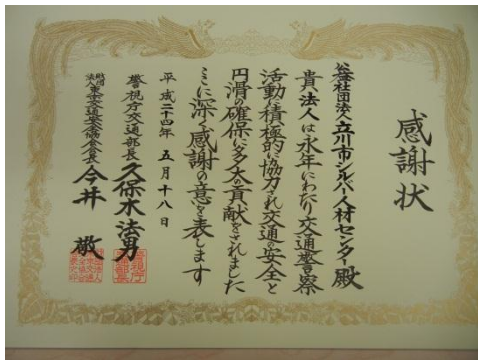 感謝状
公益社団法人 立川市シルバー人材センター 殿
貴法人は永年にわたり交通警察
活動に積極的に協力され交通の安全と
円滑の確保に多大の貢献をされました
ここに深く感謝の意を表します
平成二十四年 五月十八日
警視庁交通部長 久保木法男
財団法人東京交通安全協会会長 今井 敬